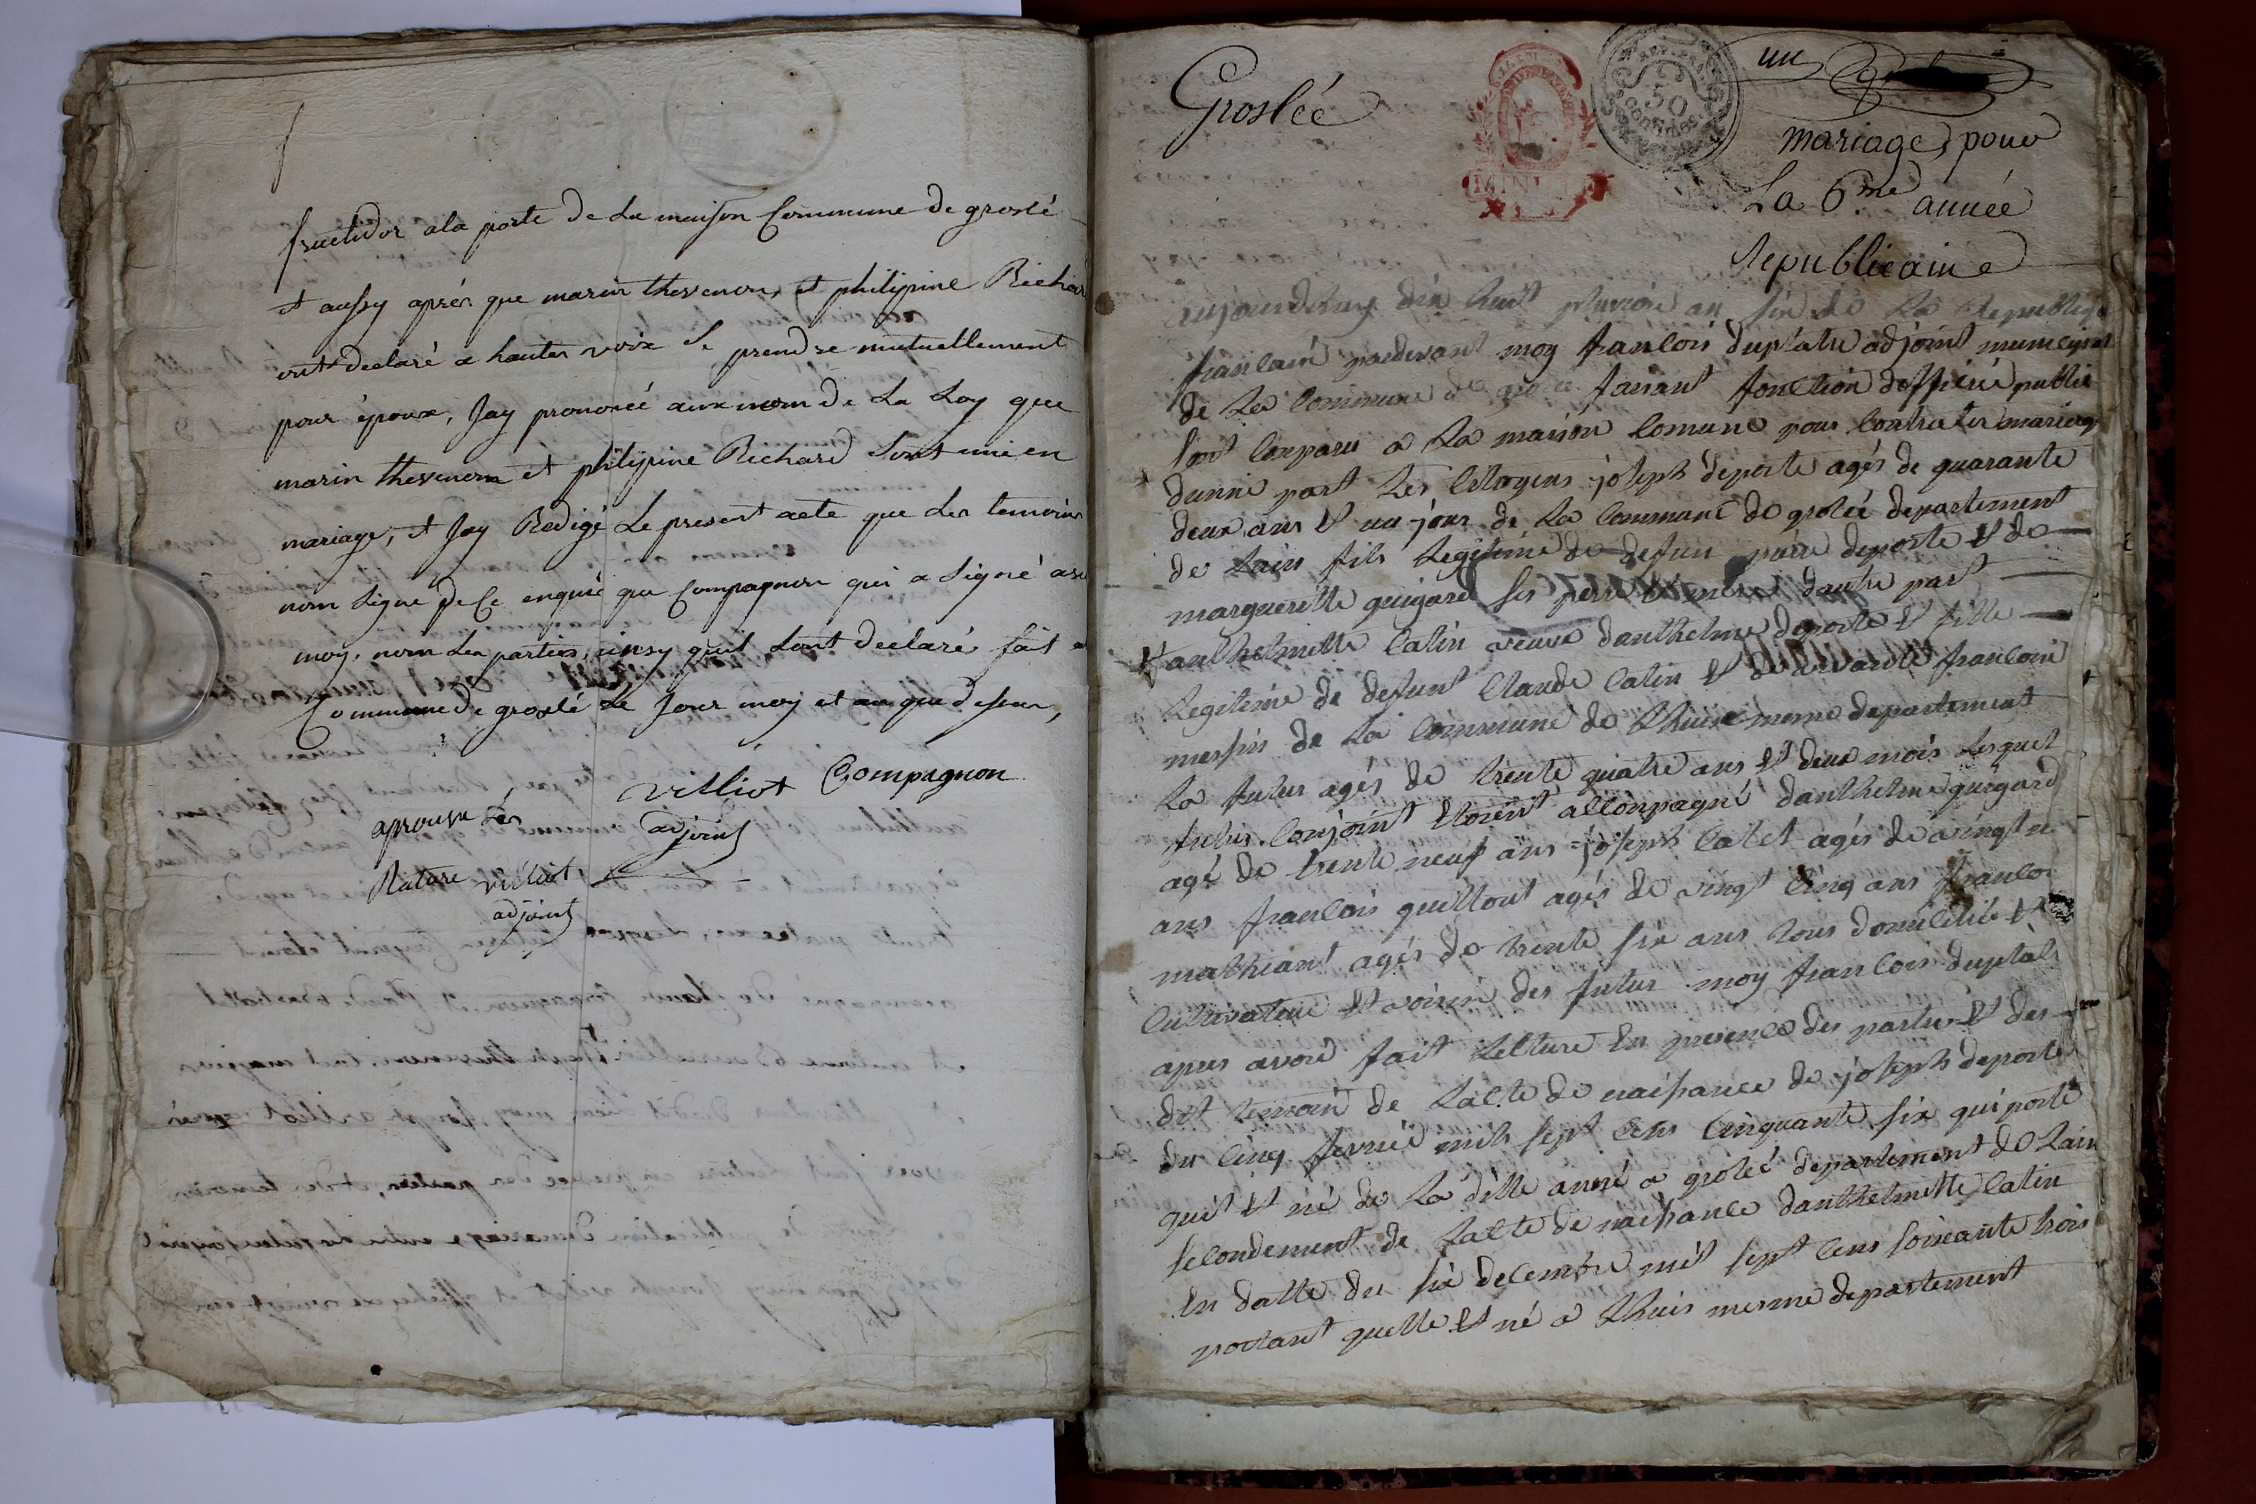 fructidor a la porte de La maison Commune de groslé
et aussy aprér que marin thevenon, et philipine Richar
ont declaré a hauter voix Se prendre mutuellement
pour époux, Jay prononcé aux nom de La Loy que
marin thevenon et philipine Richard Sont unie en
mariage, et Jay Redigé Le present acte que Les temoins
nom Signe de Ce enquié que Compagnon qui a Signé avec
moy, nom Les parties, insy quil Sont declaré, fait a
Commune de groslé Le Jour moy et an que desseur,
villiot Compagnon
adjoint
aprouvé Les
Rature villiot
adjoint
Groslée
MINUTE
REP. FRA
50
centimes
un
mariage, pour
La 6.me année
Republicaine
aujourdhuy dix huit pluviose an six de La Republique
francaise pardevant moy francois duplâtre adjoint municipal
de La Commune de groleé faisant fonction dofficié public
Sont Conparu a La maison Comune pour Contrater mariage
dunne part Les Citoyens joseph deporte agés de quarante
deux ans et un jour de La Commune de groleé departement
de Lain fils Legitime de defun pierre deporte et de
margueritte guigard Ses perre et mere dautre part
et anthelmette Catin veuve danthelme deporte et fille
Legitime de defunt Claude Catin et de francoise
de La Commune de Lhuis meme departement
La futur agés de trente quatre ans et deux mois Lesquel
futur Conjoint Etoient acConpagné danthelme guigard
agé de trente neuf ans joseph Catet agés de vingt n
ans francois quillout agés de vingt Cinq ans francoi
mathiant agés de trente six ans tous domicilié et
Cultivateur et voisin des futur moy francois duplât
apres avoir fait Lecture En presence des parties et des
dit temoin de Lacte de naissance de joseph deporte
du Cinq fevrié mils sept Cens Cinquante six qui porte
quil et né de La ditte anné a groleé departement de Lain
secondement de Lacte de naissance danthelmette Catin
En datte du six decembre mil sept Cens soixante trois
portant quelle et né a Lhuis mesme departement